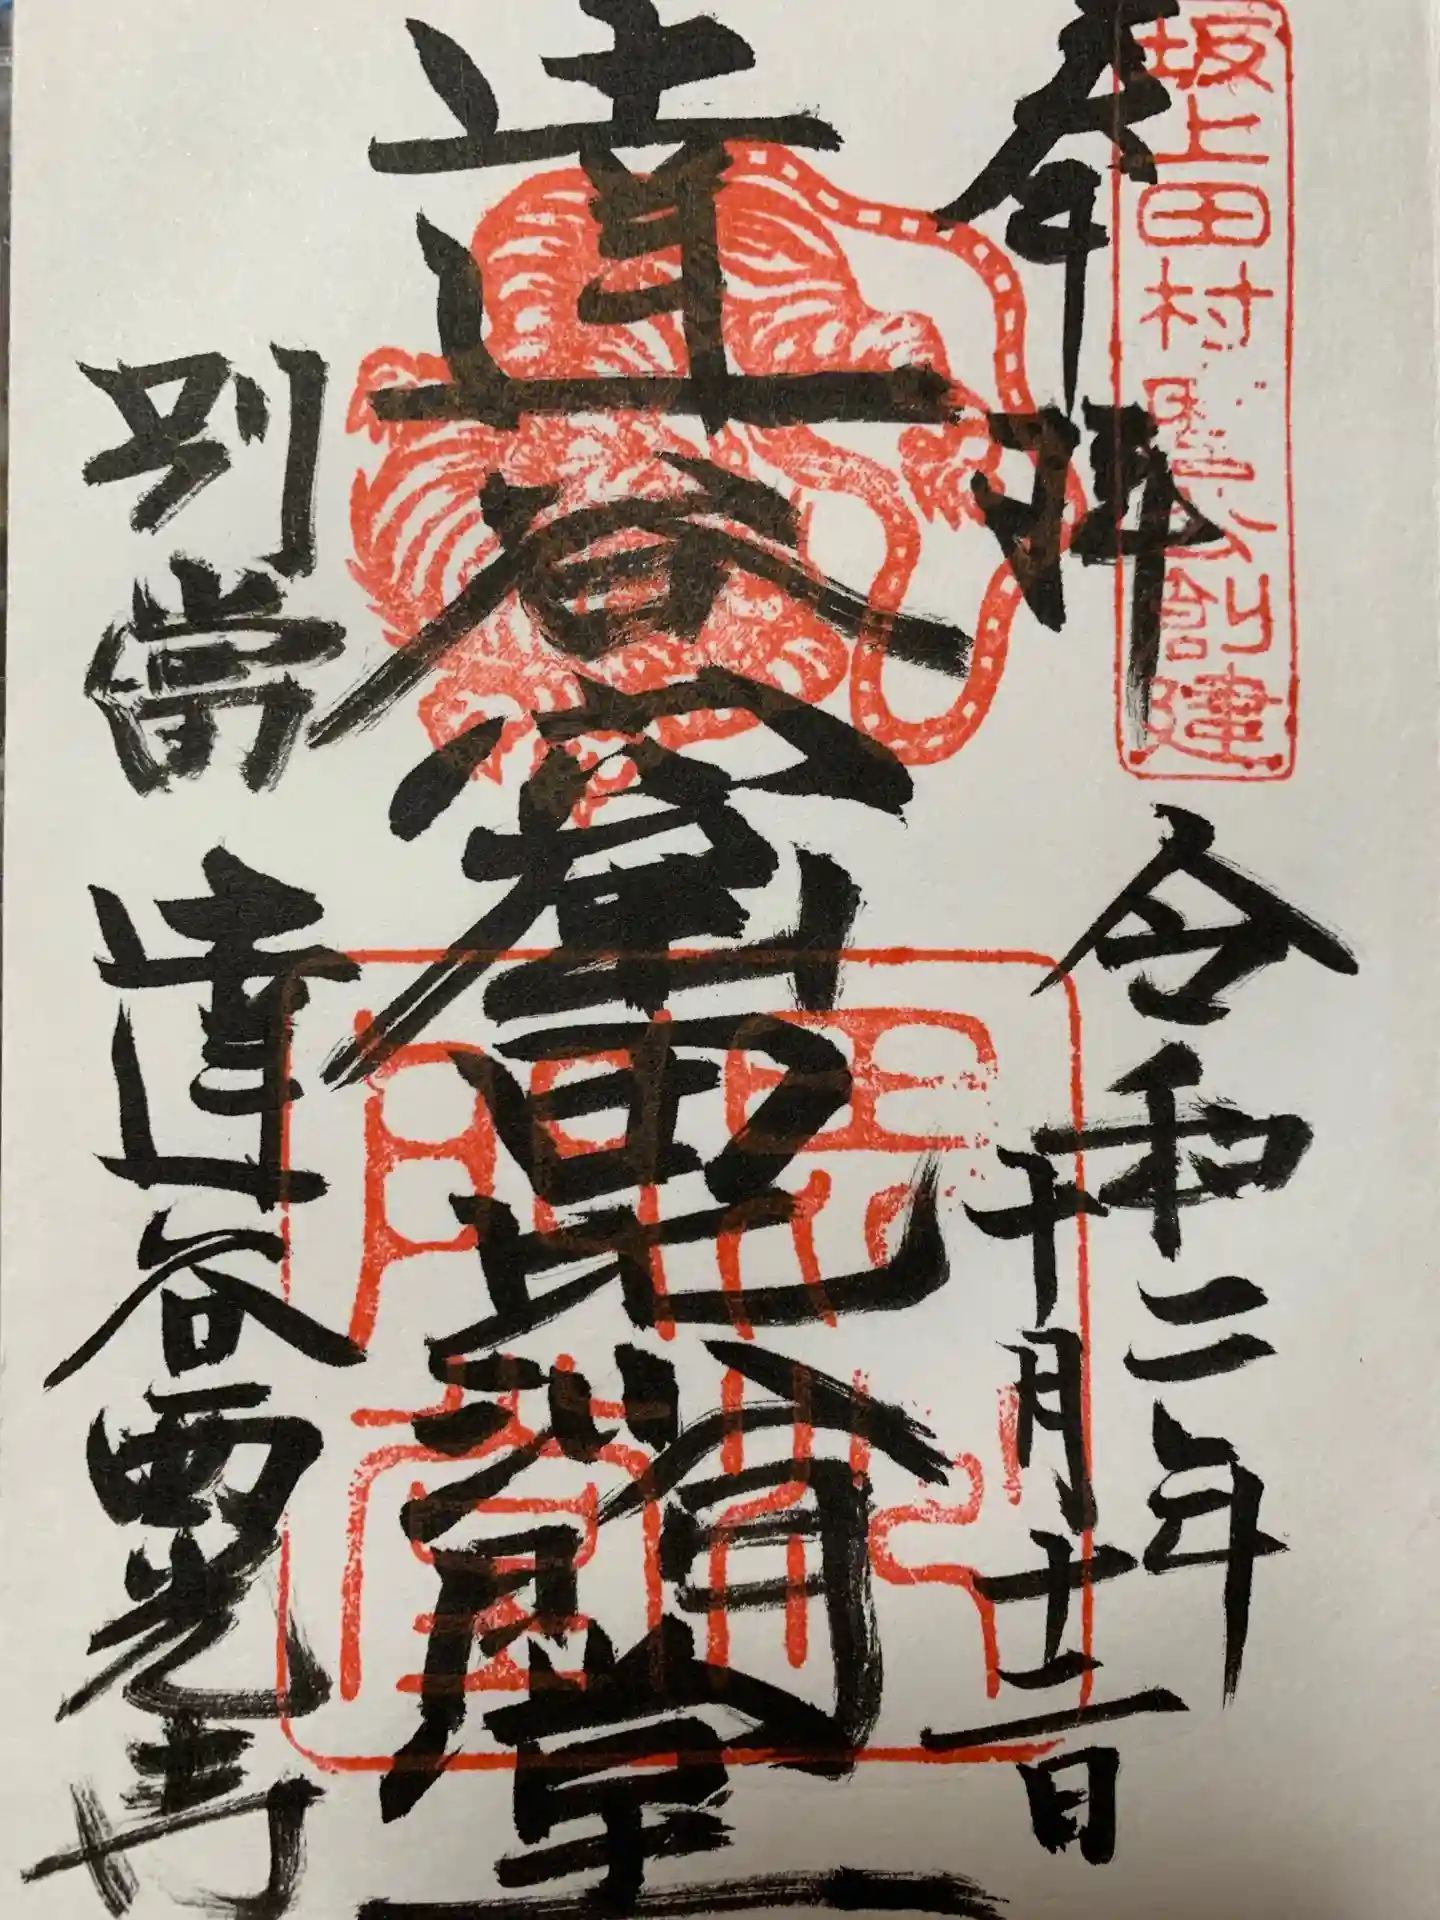 坂上田村麿公創建
奉拝
令和二年
十月十二日
達谷窟毘沙門堂
別當
達谷西光寺